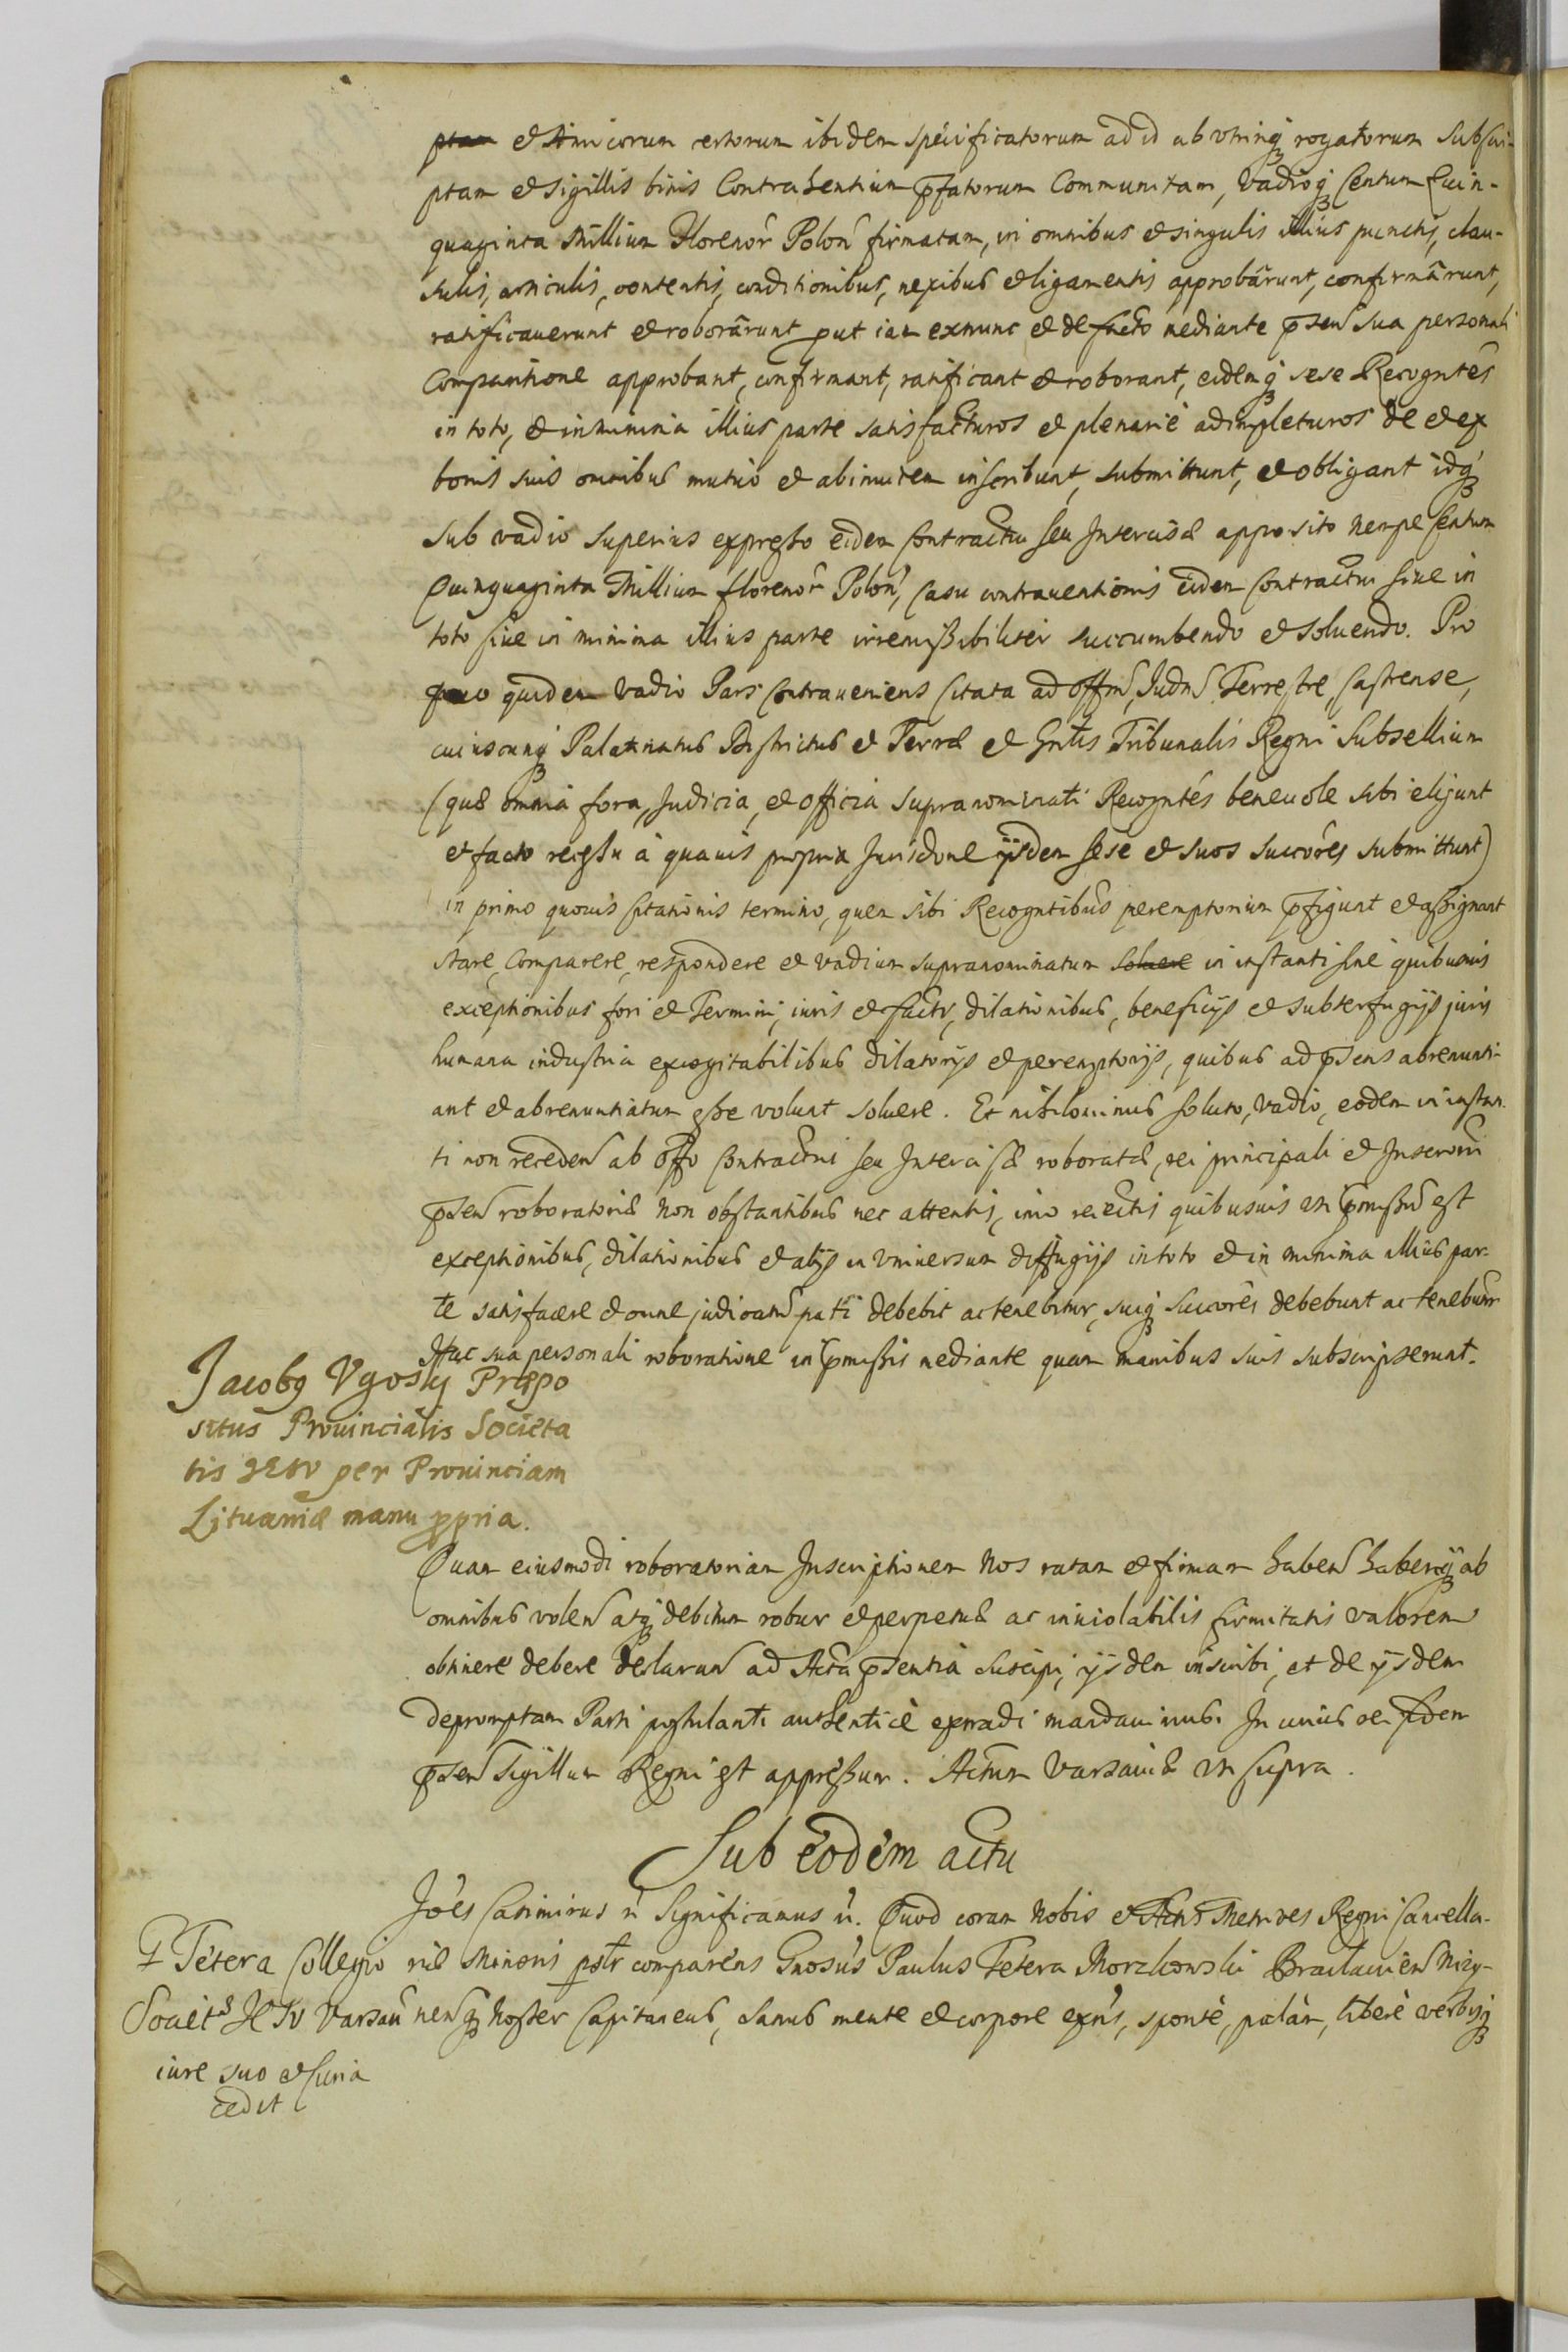 ptam et Amicorum certorum ibidem specificatorum ad id ab vtrinq rogatorum subscri-
ptam et sigillis binis Contrahentium pfatorum Communitam, Vadioq Centum Quin-
quaginta Millium Florenor Polon firmatam, in omnibus et singulis illius punctis, clau-
sulis, articulis, contentis, conditionibus, nexibus et ligamentis approbârunt, confirmârunt,
ratificauerunt et roborârunt put iam exnunc et de facto mediante psen sua personali
Comparitione approbant, confirmant, ratificant et roborant, eidemq sese Recogntes
in toto, et in minima illius parte satisfacturos et plenariè adimpleturos de et ex
bonis suis omnibus mutuò et abinuicem inscribunt, submittunt, et obligant idq
sub vadio superius expresso eidem Contractui seu Intercisæ apposito nempe Centum
Quinquaginta Millium florenor Polon, Casu contrauentionis eidem Contractui siue in
toto siue in minima illius parte irremissibiliter succumbendo et soluendo. Pro
quo quidem Vadio Pars Contraueniens Citata ad Offm, Judm Terrestre, Castrense,
cuiuscunq Palatinatus Districtus et Terræ et Gntis Tribunalis Regni Subsellium
(quæ omnia fora, Judicia, et officia supranominati Recogntes beneuole sibi eligunt
et facto recessu à quauis propria Jurisdone ijsdem sese et suos succôres submittunt)
in primo quouis Citationis termino, quem sibi Recogntibus peremptorium pfigunt et assignant
stare, Comparere, respondere et vadium supranominatum soluere in instanti sine quibusuis
exceptionibus fori et Termini, iuris et facti, dilationibus, beneficijs et subterfugijs juris
humana industria excogitabilibus dilatorijs et peremptorijs, quibus ad psens abrenunti-
ant et abrenuntiatum esse volunt soluere. Et nihilominus soluto, Vadio, eodem in instan-
ti non receden ab Offo Contractui seu Intercisæ roboratæ, rei principali et Inscroni
psen roboratoriæ non obstantibus nec attentis, imo reiectis quibusuis vti pmissu est
exceptionibus, dilationibus et alijs in vniuersum diffugijs in toto et in minima illius par-
te satisfacere et omne judicatu pati debebit ac tenebitur, suiq succôres debebunt ac tenebunr
Hac sua personali roboratione in pmissis mediante quam manibus suis subscripserunt.
Jacobg Vgoski Præpo
situs Prouincialis Societa
tis IESV per Prouinciam
Lituaniæ manu ppria.
Quam eiusmodi roboratoriam Inscriptionem Nos ratam et firmam haben haberiq ab
omnibus volen atq debitum robur et perpetuæ ac inuiolabilis firmitatis valorem
obtinere debere declaran ad Acta psentia suscipi, ijsdem inscribi, et de ijsdem
depromptam Parti postulanti authenticè extradi mandauimus. In cuius rei fidem
psen Sigillum Regni est appressum. Actum Varsauiæ vt supra.
Sub eodem actu
Joês Casimirus ñ Significamus ñ. Quod coram Nobis et Actis Metrices Regni Cancella-
G Tetera Collegio
riæ Minoris pstr comparens Gnosus Paulus Tetera Morzkowski Braclauien Nizy-
Societs IESV Varsau
nensq Noster Capitaneus, sanus mente et corpore exns, sponte, palàm, liberè verbisq
iure suo et Curia
cedit